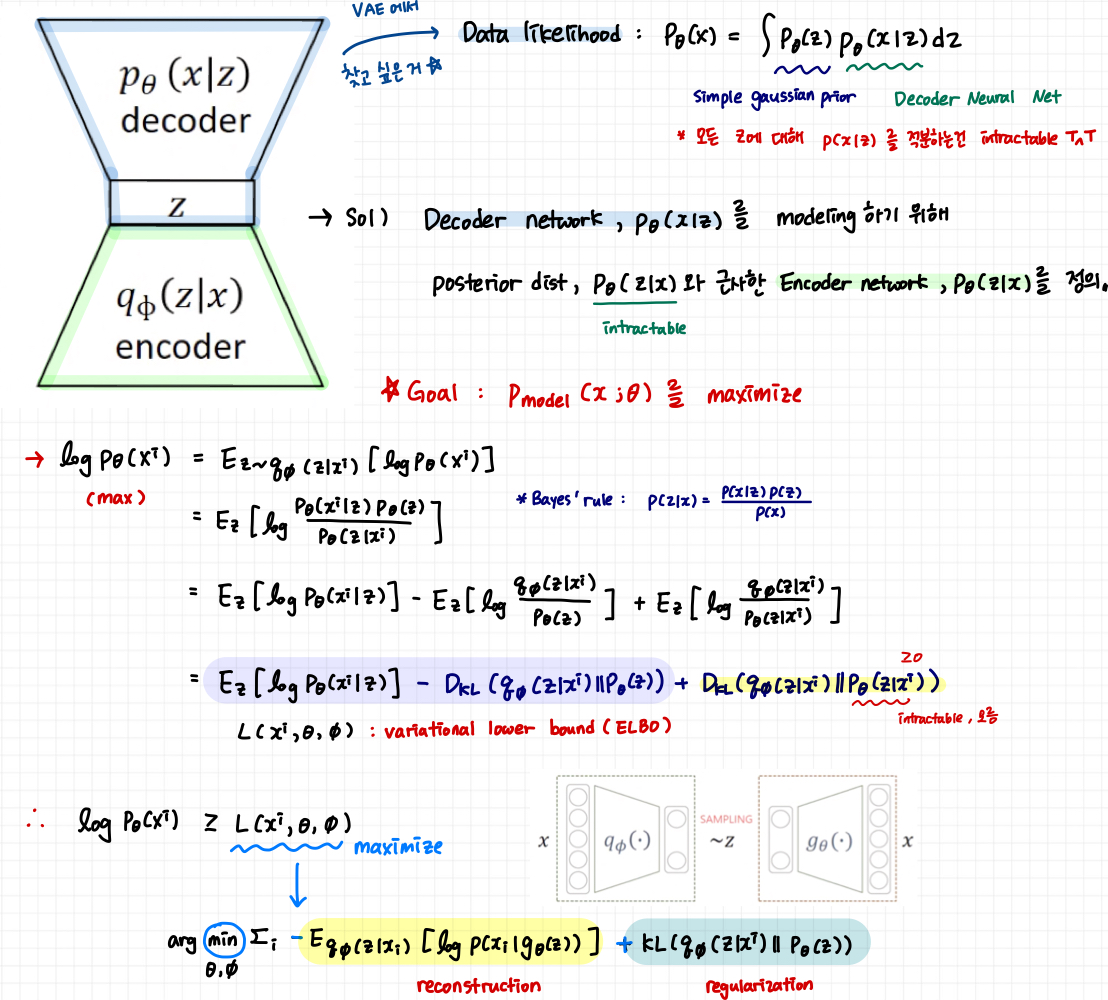 VAE 에서
찾고 싶은 거 ☆
Data likelihood : Pθ(x) = ∫ Pθ(z) pθ(x|z) dz
Simple gaussian prior
Decoder Neural Net
* 모든 z에 대해 p(x|z) 를 적분하는건 intractable T^T
pθ(x|z)
decoder
z
qϕ(z|x)
encoder
→ Sol) Decoder network, pθ(x|z) 를 modeling 하기 위해
posterior dist, Pθ(z|x) 와 근사한 Encoder network, Pθ(z|x)를 정의.
intractable
☆ Goal : Pmodel (x;θ) 를 maximize
→ log Pθ(xⁱ) = E_{z~qϕ(z|xⁱ)} [log Pθ(xⁱ)]
(max)
= Ez [log Pθ(xⁱ|z) Pθ(z) / Pθ(z|xⁱ)]
* Bayes' rule : P(z|x) = P(x|z) P(z) / P(x)
= Ez [log Pθ(xⁱ|z)] - Ez [log qϕ(z|xⁱ) / Pθ(z)] + Ez [log qϕ(z|xⁱ) / Pθ(z|xⁱ)]
= Ez [log Pθ(xⁱ|z)] - DKL (qϕ(z|xⁱ)||Pθ(z)) + DKL (qϕ(z|xⁱ)||Pθ(z|xⁱ))
≥0
intractable, 모름
L(xⁱ,θ,ϕ) : variational lower bound (ELBO)
∴ log Pθ(xⁱ) ≥ L(xⁱ,θ,ϕ)
maximize
x
qϕ(·)
SAMPLING
~z
gθ(·)
x
arg min Σi - E_{qϕ(z|xi)} [log p(xi|gθ(z))] + KL(qϕ(z|xⁱ)||Pθ(z))
θ,ϕ
reconstruction
regularization